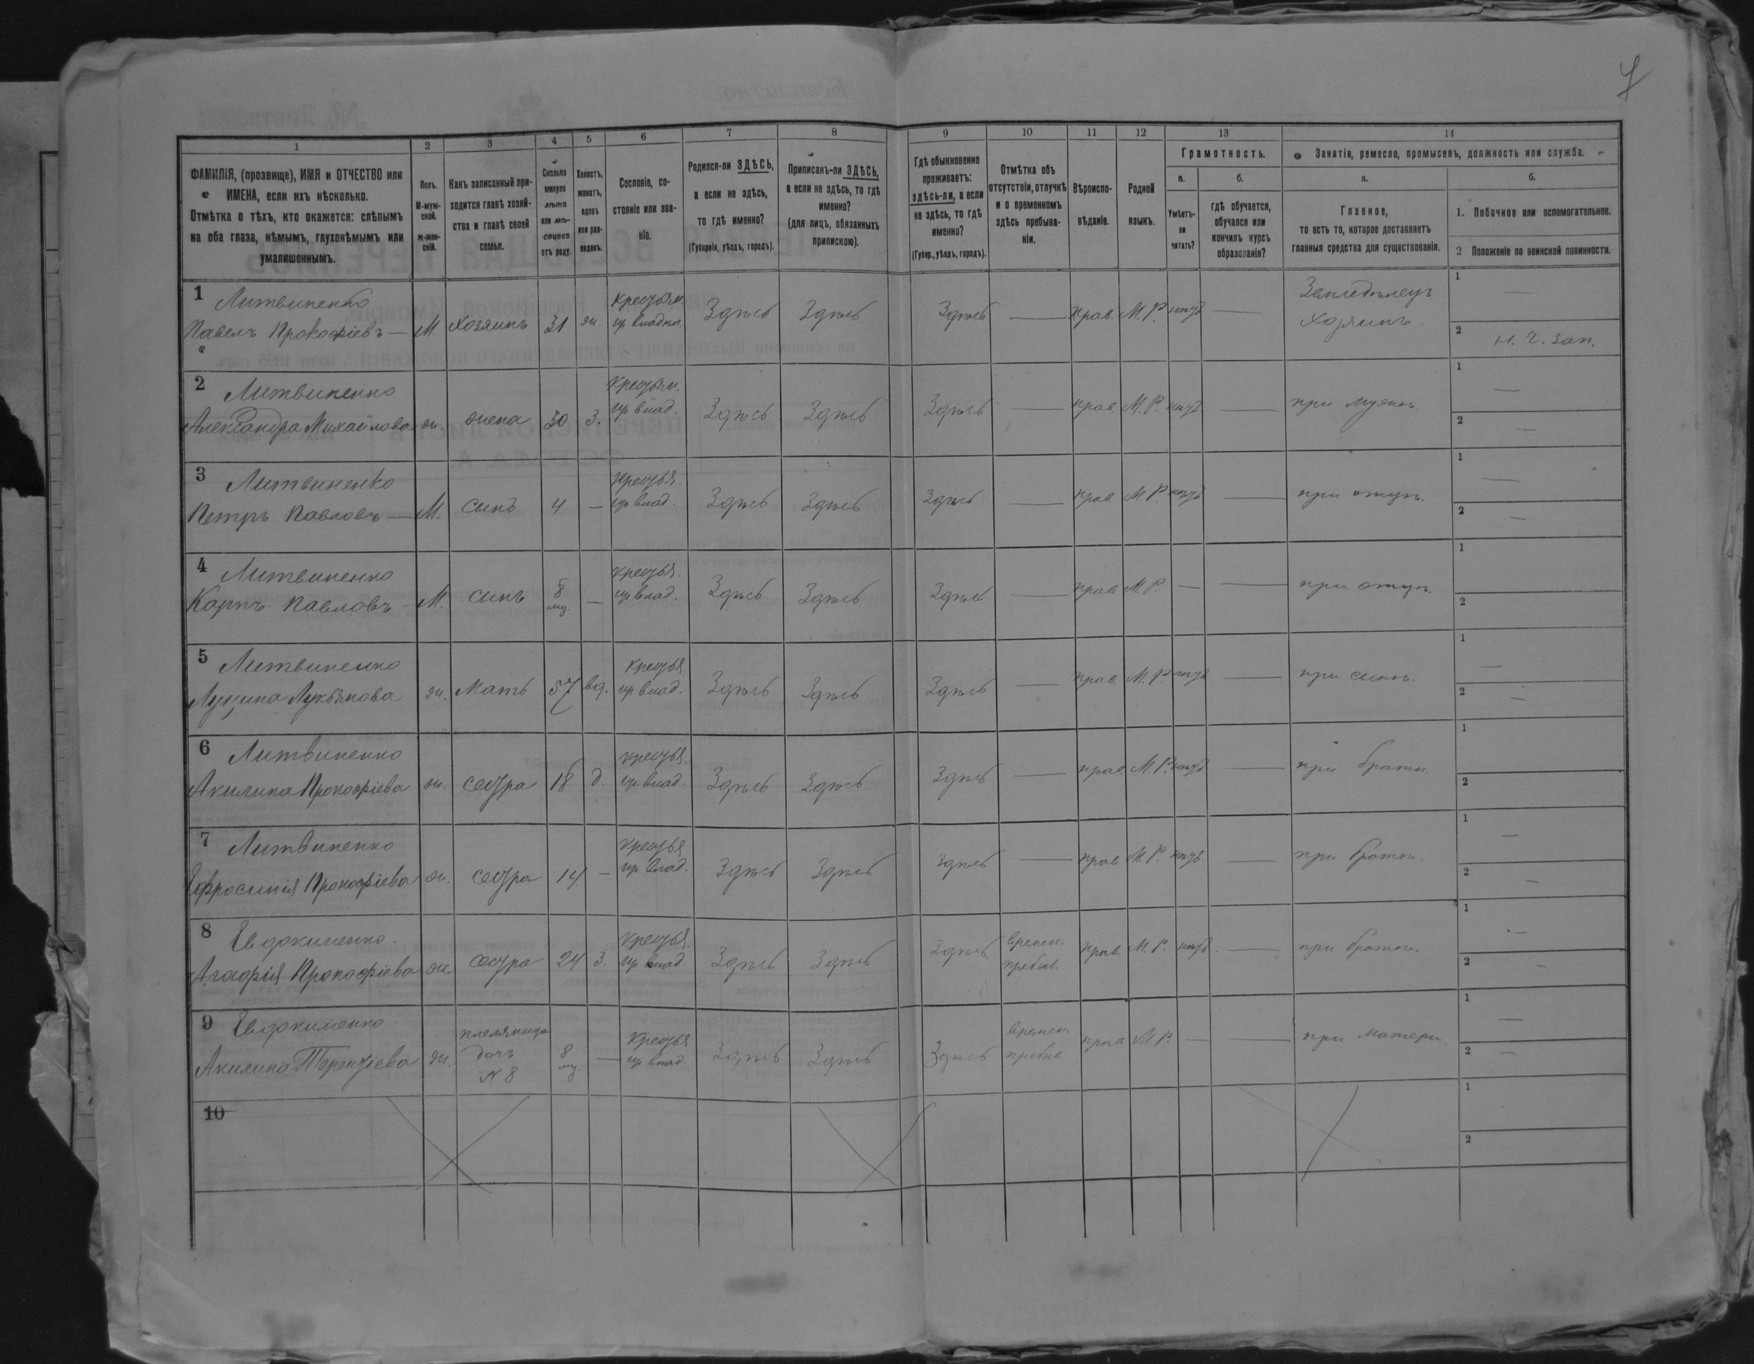 1 2 3 4 5 6 7 8 9 10 11 12 13 14
ФАМИЛІЯ, (прозвище), ИМЯ и ОТЧЕСТВО или ИМЕНА, если ихъ нѣсколько.
Отмѣтка о тѣхъ, кто окажется: слѣпымъ на оба глаза, нѣмымъ, глухонѣмымъ или умалишеннымъ.
Полъ.
М-мужской.
ж-женскій.
Какъ записанный приходится главѣ хозяйства и главѣ своей семьи.
Сколько минуло лѣтъ или мѣсяцевъ отъ роду.
Холостъ, женатъ, вдовъ или разведенъ.
Сословіе, состояніе или званіе.
Родился-ли ЗДѢСЬ,
а если не здѣсь,
то гдѣ именно?
(Губернія, уѣздъ, городъ).
Приписанъ-ли ЗДѢСЬ,
а если не здѣсь, то гдѣ именно?
(для лицъ, обязанныхъ припискою).
Гдѣ обыкновенно проживаетъ:
здѣсь-ли, а если не здѣсь, то гдѣ именно?
(Губер., уѣздъ, городъ).
Отмѣтка объ отсутствіи, отлучкѣ и о временномъ здѣсь пребываніи.
Вѣроисповѣданіе.
Родной языкъ.
Грамотность.
а.
Умѣетъ-ли читать?
б.
гдѣ обучается, обучался или кончилъ курсъ образованія?
Занятіе, ремесло, промыселъ, должность или служба.
а.
Главное,
то есть то, которое доставляетъ главныя средства для существованія.
б.
1. Побочное или вспомогательное.
2 Положеніе по воинской повинности.
1 Литвиненко
Павелъ Прокофіевъ — М. хозяинъ 31 ж. крестьян. из владѣл. Здѣсь Здѣсь Здѣсь — прав. М.Р. нѣтъ — Земледѣлецъ хозяинъ 1 — 2 н. ч. зап.
2 Литвиненко
Александра Михайлова ж. жена 30 з. крестьян. из влад. Здѣсь Здѣсь Здѣсь — прав М.Р. нѣтъ — при мужѣ 1 — 2 —
3 Литвиненко
Петръ Павловъ — М. сынъ 4 — крестья. из влад. Здѣсь Здѣсь Здѣсь — прав М.Р. нѣтъ — при отцѣ. 1 — 2 —
4 Литвиненко
Карпъ Павловъ — М. сынъ 8 мц. — крестья. из влад. Здѣсь Здѣсь Здѣсь — прав М.Р. — — при отцѣ. 1 2
5 Литвиненко
Лукьянова ж. мать 57 вд. крестья. из влад. Здѣсь Здѣсь Здѣсь — прав М.Р. нѣтъ — при сынѣ. 1 — 2 —
6 Литвиненко
Акилина Прокофіева ж. сестра 18 д. крестья. из влад. Здѣсь Здѣсь Здѣсь — прав М.Р. нѣтъ — при братѣ 1 2
7 Литвиненко
Ефросинія Прокофіева ж. сестра 14 — крестья из влад. Здѣсь Здѣсь Здѣсь — прав. М.Р. нѣтъ — при братѣ. 1 — 2 —
8 Евдокименко
Агафія Прокофіева ж. сестра 24 з. крестья. из влад. Здѣсь Здѣсь Здѣсь времен. пребыв. прав. М.Р. нѣтъ. — при братѣ. 1 — 2 —
9 Евдокименко
Акилина Терентіева ж. племянница дочь N 8 8 мц — крестья из влад Здѣсь Здѣсь Здѣсь времен. пребыв прав М.Р. — — при матери. 1 — 2 —
10 1 2